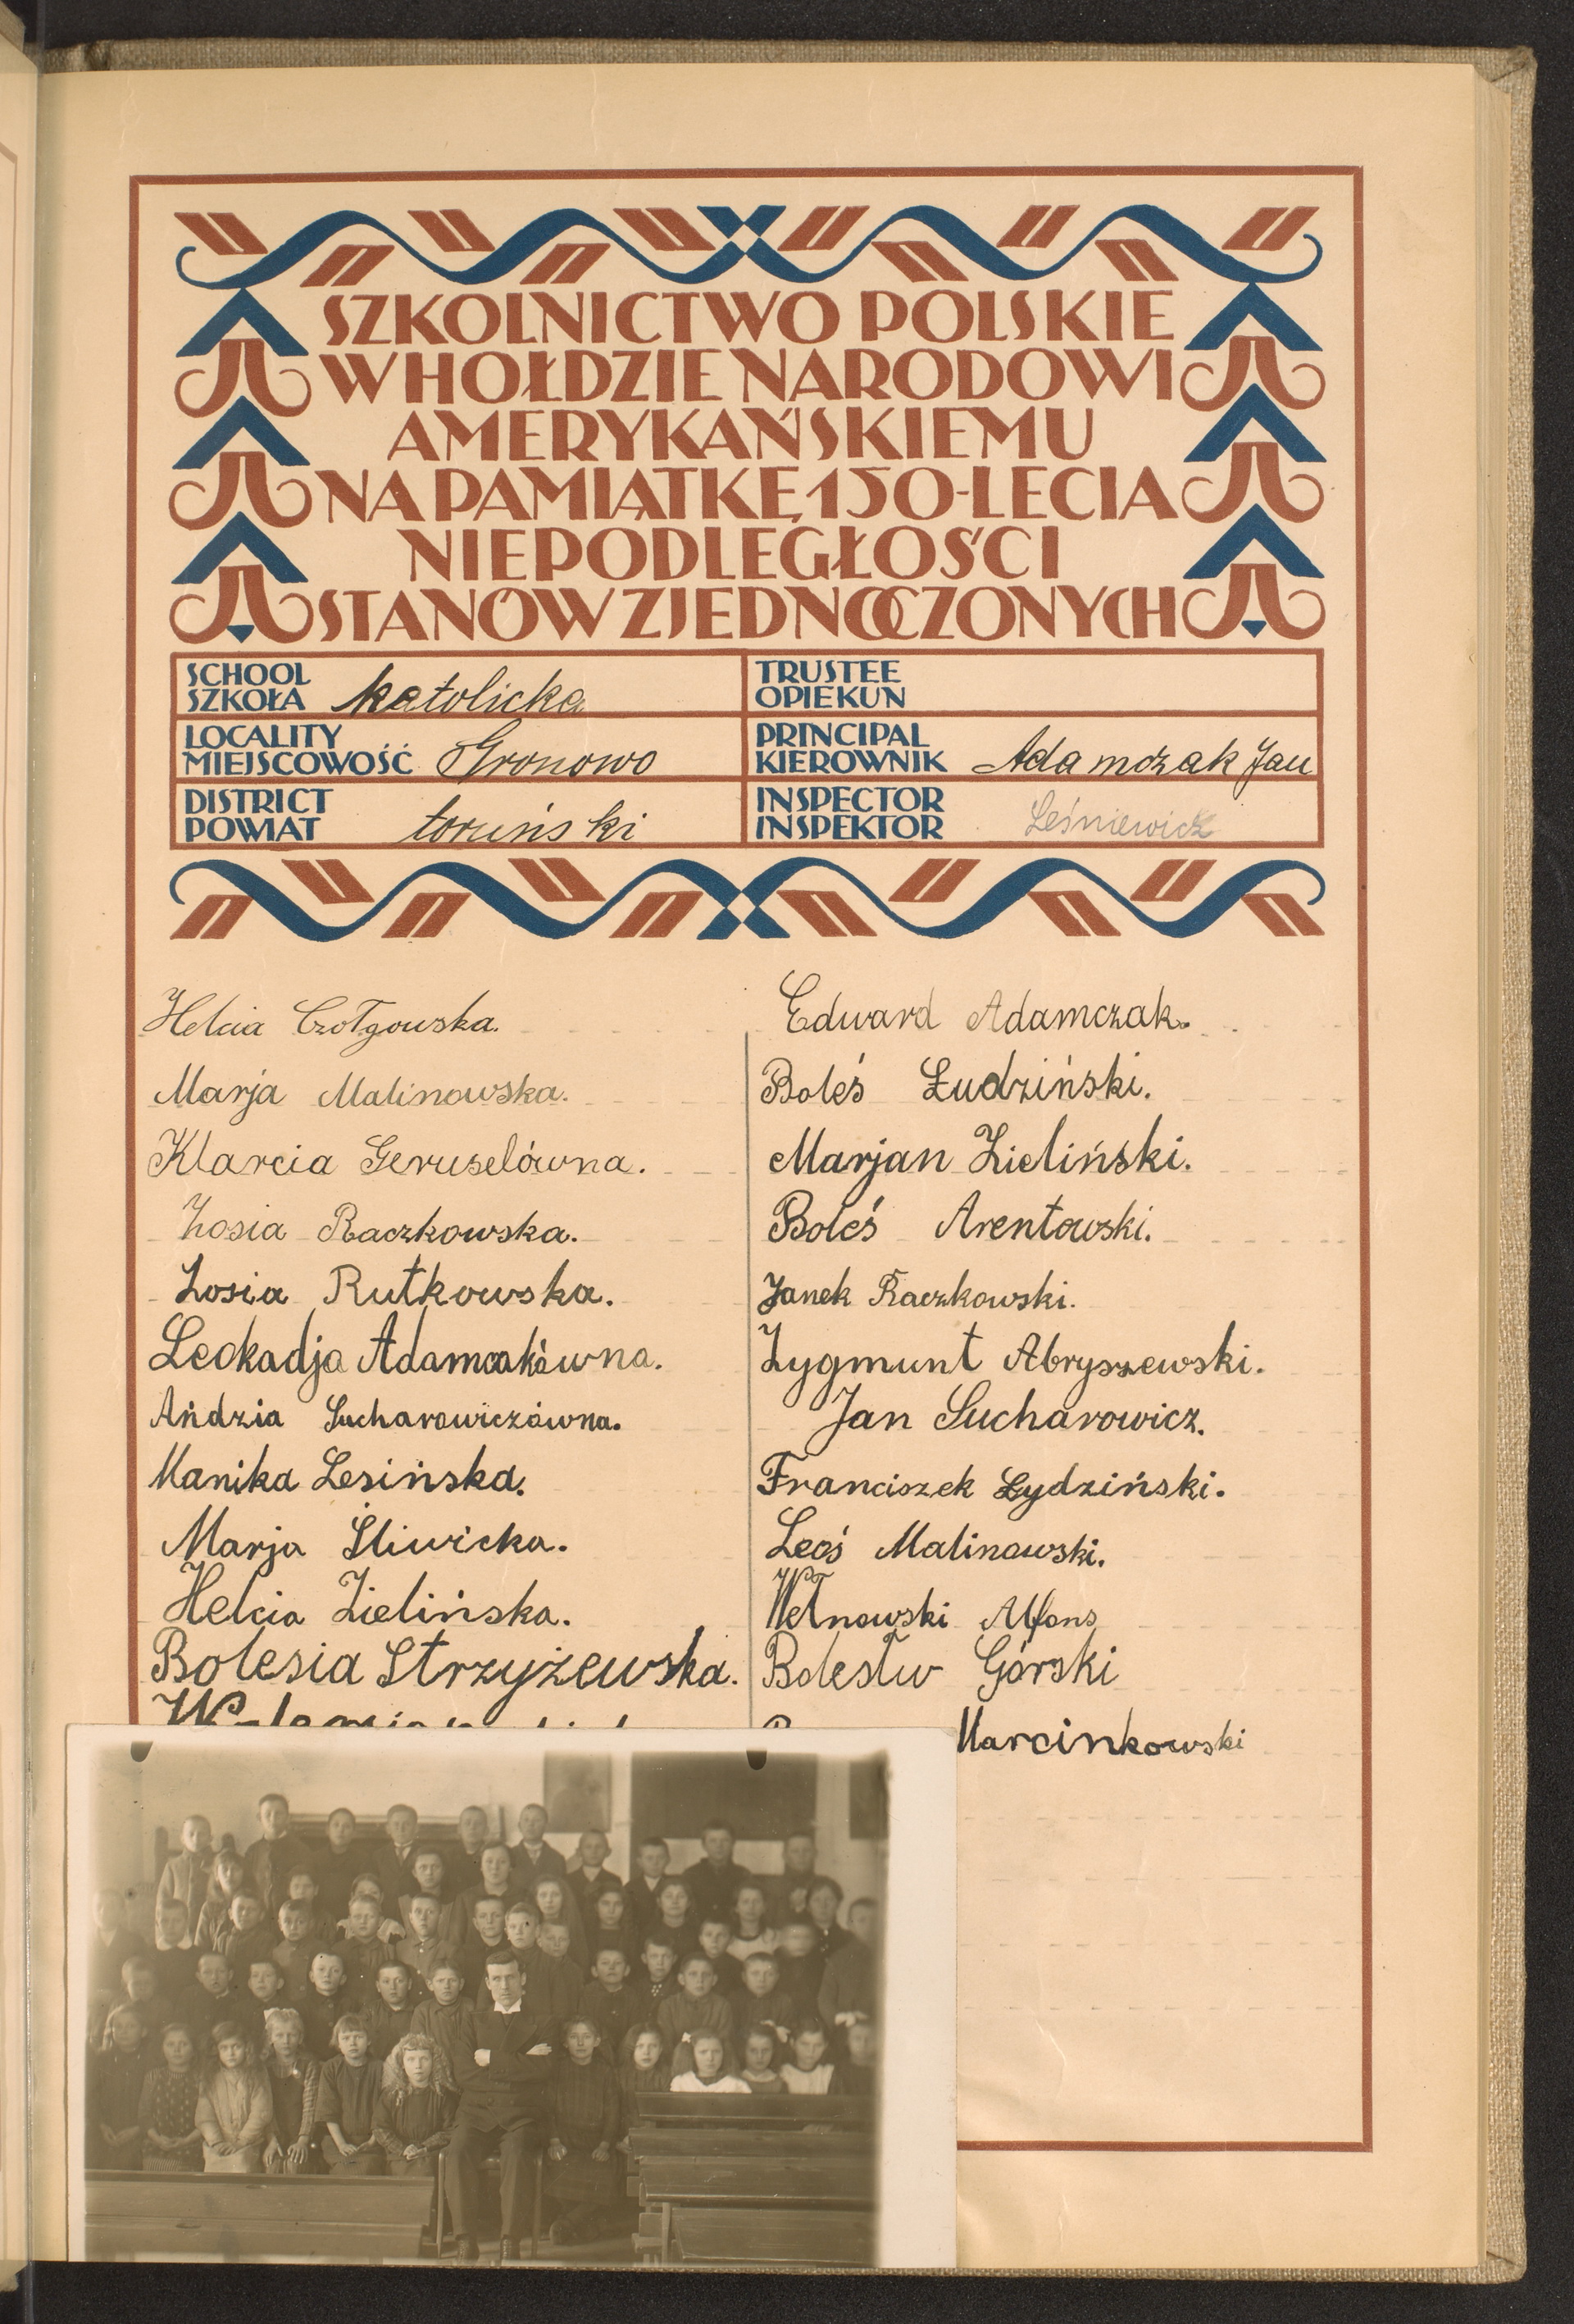 SZKOLNICTWO POLSKIE
W HOŁDZIE NARODOWI
AMERYKAŃSKIEMU
NA PAMIĄTKĘ 150-LECIA
NIEPODLEGŁOŚCI
STANÓW ZJEDNOCZONYCH
SCHOOL
SZKOŁA katolicka
TRUSTEE
OPIEKUN
LOCALITY
MIEJSCOWOŚĆ Gronowo
PRINCIPAL
KIEROWNIK Adamczak Jan
DISTRICT
POWIAT toruński
INSPECTOR
INSPEKTOR Leśniewicz
Helcia Czołgowska.
Marja Malinowska.
Klarcia Geruselówna.
Zosia Raczkowska.
Zosia Rutkowska.
Leokadja Adamczakówna.
Andzia Sucharowiczówna.
Manika Lesińska.
Marja Śliwicka.
Helcia Zielińska.
Bolesia Strzyżewska.
Edward Adamczak.
Boleś Łudziński.
Marjan Zieliński.
Boleś Arentowski.
Janek Raczkowski.
Zygmunt Abryszewski.
Jan Sucharowicz.
Franciszek Łydziński.
Leoś Malinowski.
Wełnowski Alfons
Bolesłw Górski
Marcinkowski